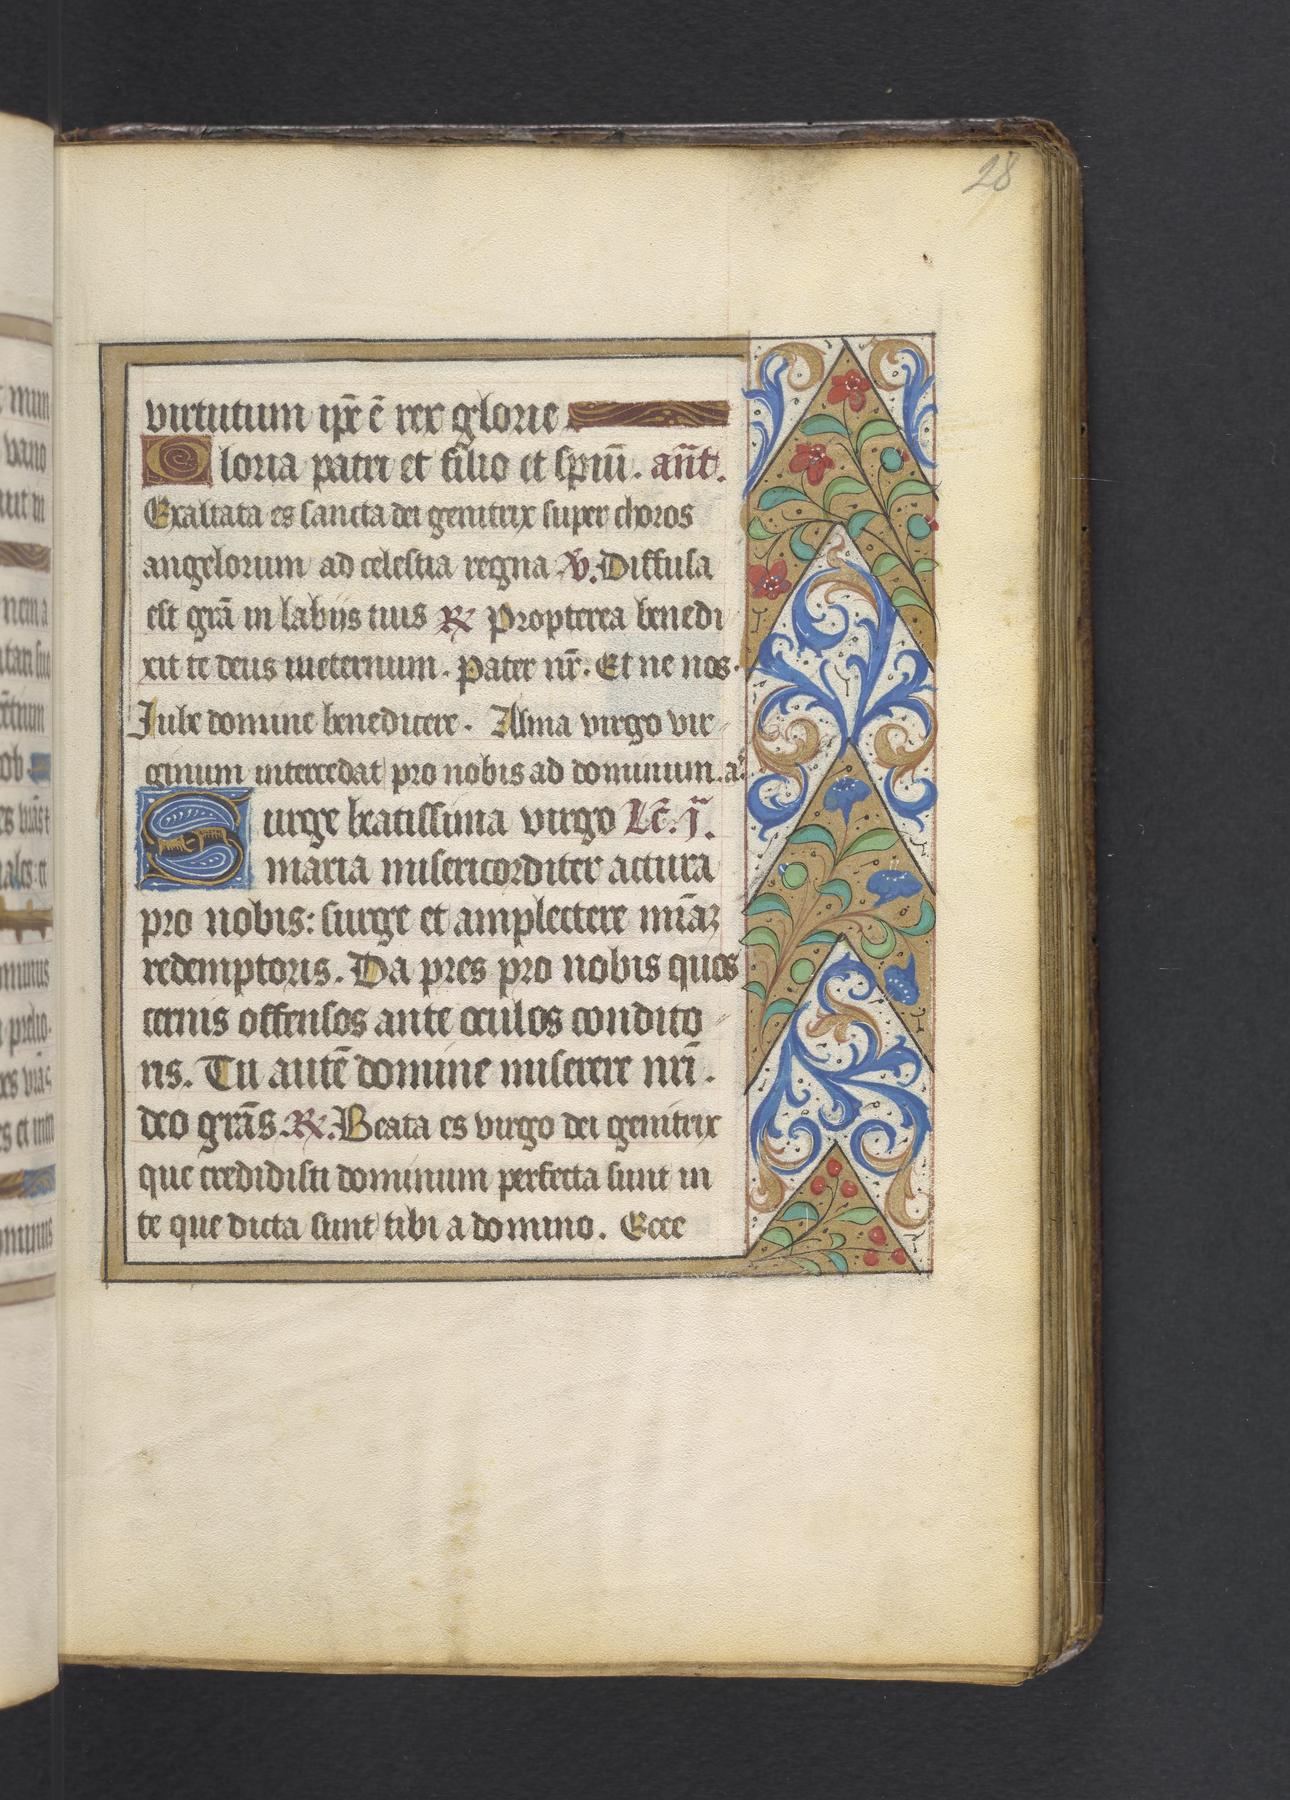 28
virtutum ip̄e ē rex glorie
Gloria patri et filio et sp̄iūi. an̄t.
Exaltata es sancta dei genitrix super choros
angelorum ad celestia regna ℣. Diffusa
est grā in labiis tuis ℞ Propterea benedi
xit te deus in eternum. Pater nr̄. Et ne nos.
Iube domine benedicere. Alma virgo vir
ginum intercedat pro nobis ad dominum. a.
Surge beatissima virgo Lc̄. j.
maria misericorditer actura
pro nobis: surge et amplectere mīaꝫ
redemptoris. Da preces pro nobis quos
cernis offensos ante oculos condito
ris. Tu autē domine miserere nr̄i.
deo grās. ℞. Beata es virgo dei genitrix
que credidisti dominum perfecta sunt in
te que dicta sunt tibi a domino. Ecce